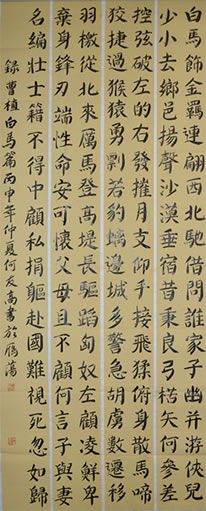 白馬飾金羈連翩西北馳借問誰家子幽并游俠兒
少小去鄉邑揚聲沙漠垂宿昔秉良弓楛矢何參差
控弦破左的右發摧月支仰手接飛猱俯身散馬蹄
狡捷過猴猿勇剽若豹螭邊城多警急胡虜數遷移
羽檄從北來厲馬登高堤長驅蹈匈奴左顧凌鮮卑
棄身鋒刃端性命安可懷父母且不顧何言子與妻
名編壯士籍不得中顧私捐軀赴國難視死忽如歸
錄曹植白馬篇丙申年仲夏何友高書於雁蕩